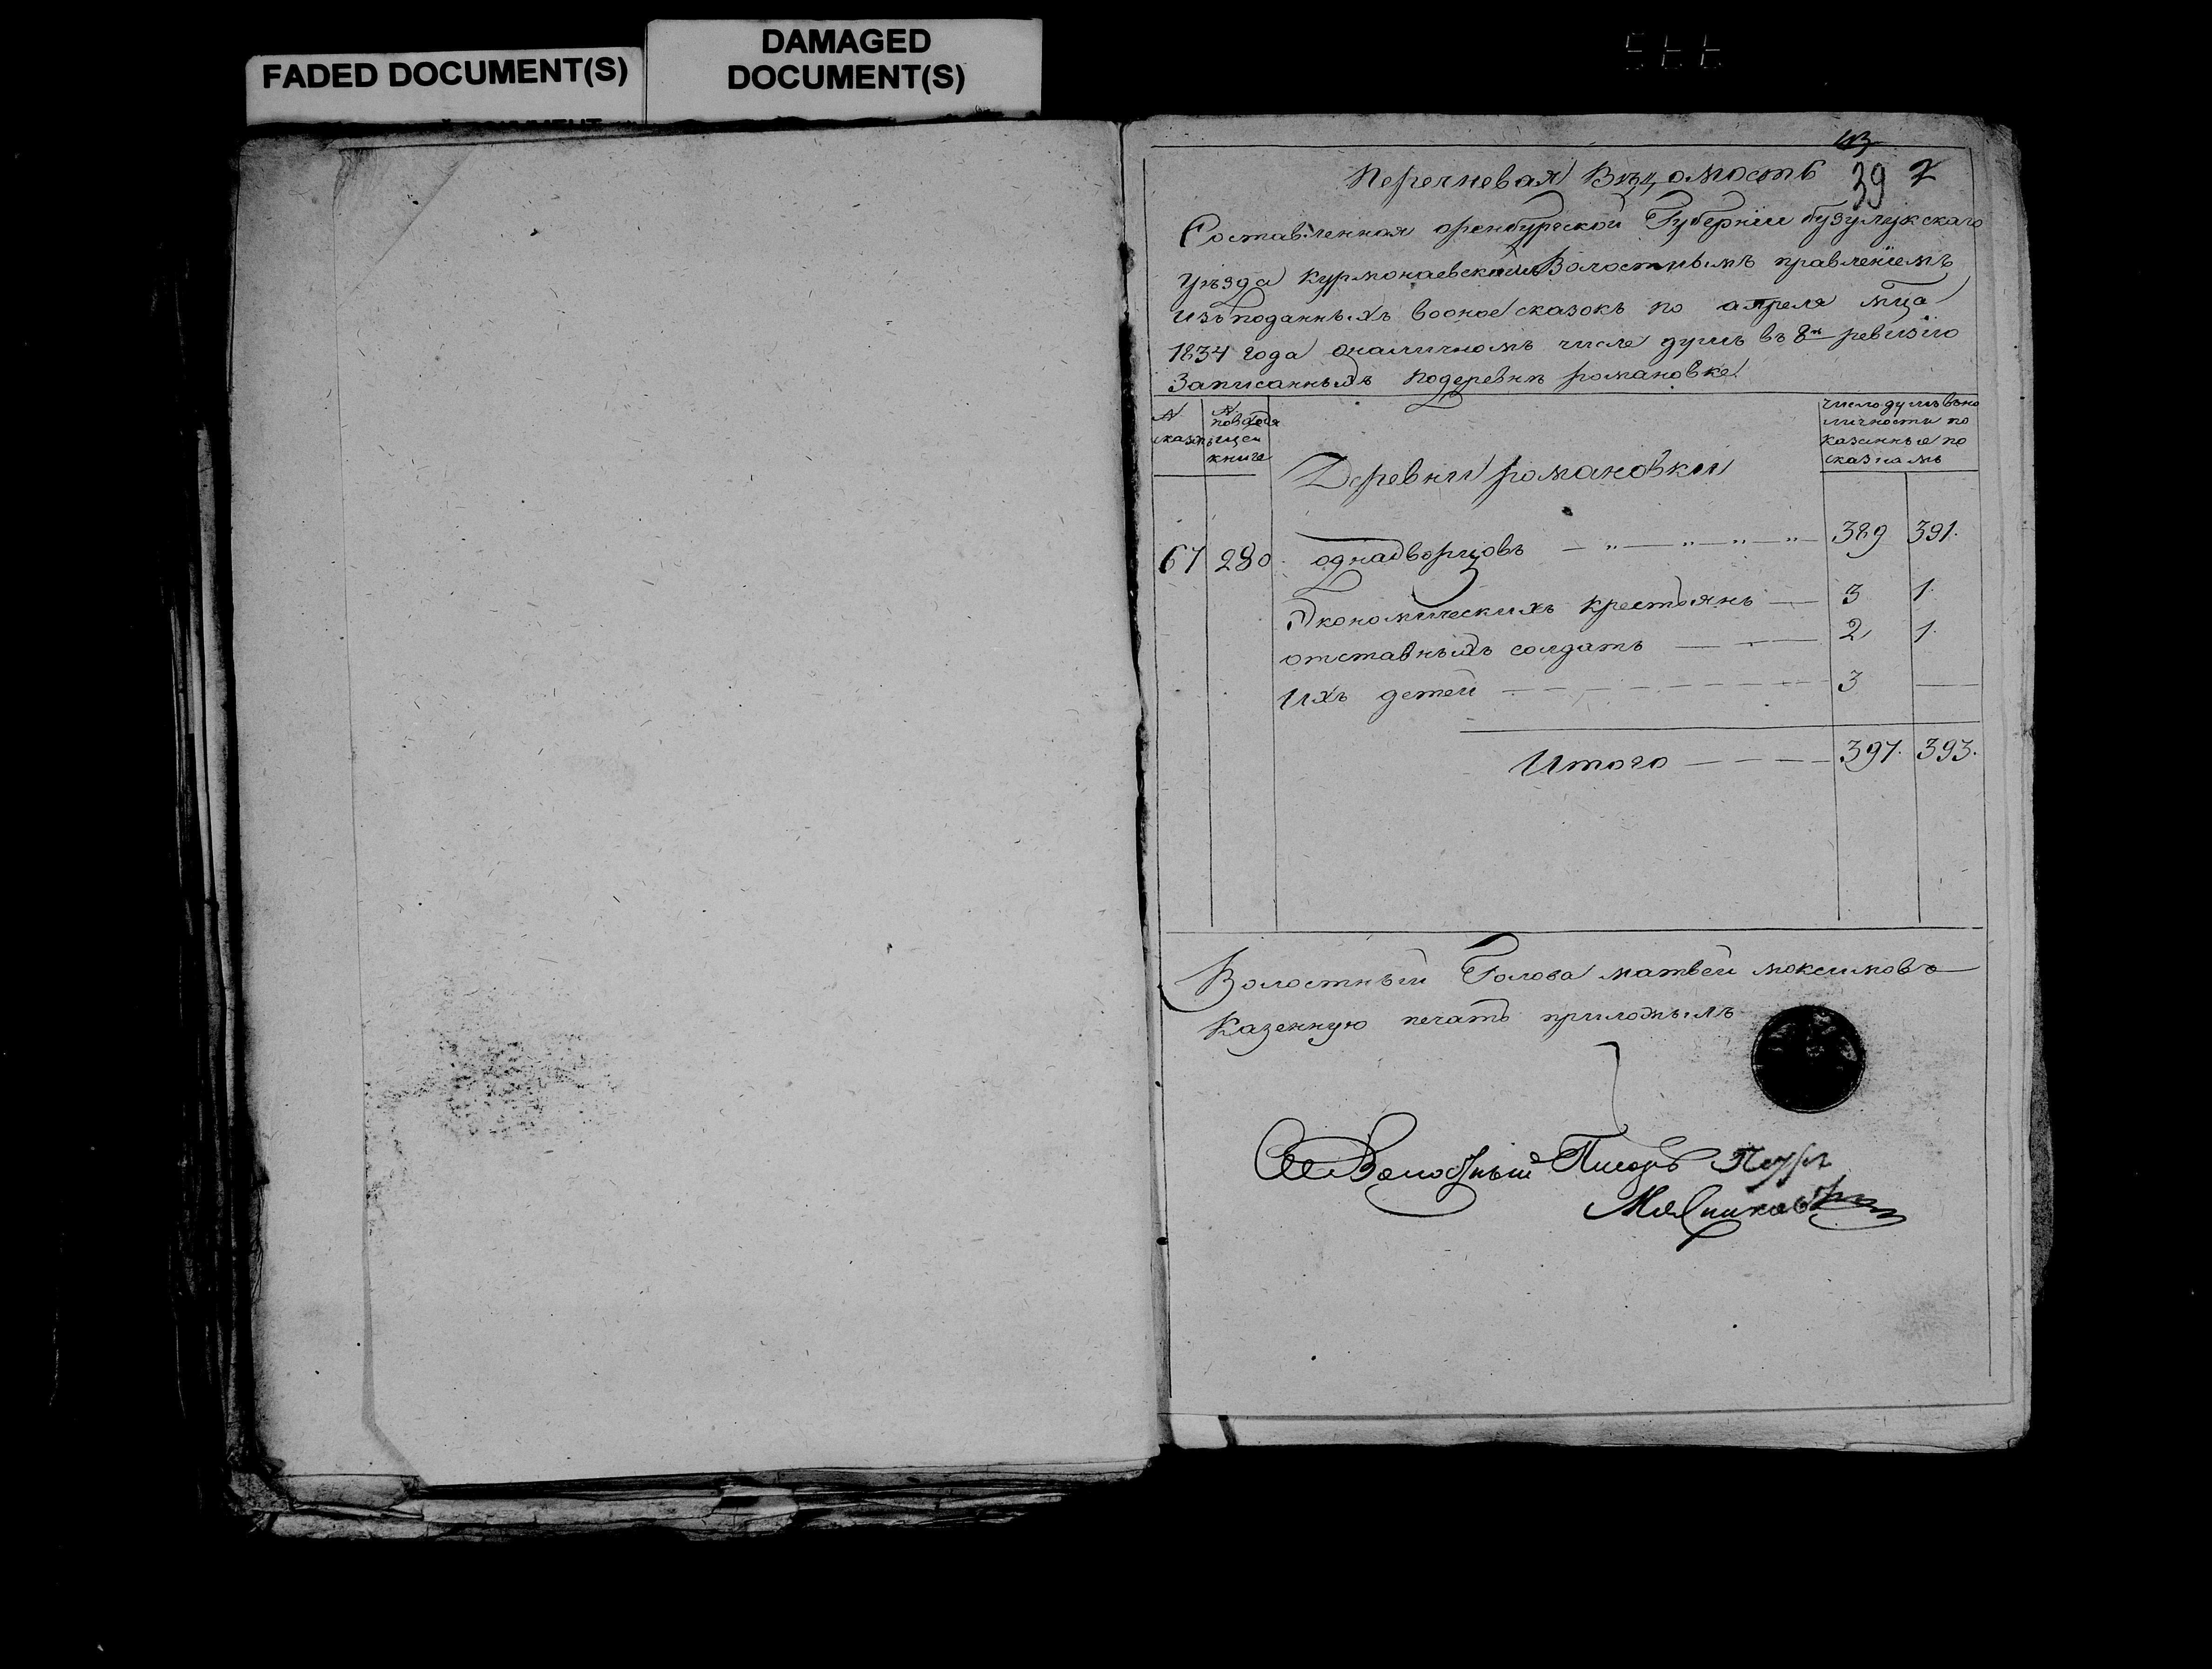 FADED DOCUMENT(S)
DAMAGED
DOCUMENT(S)
39 2
Перечневая Вѣдомость
Составленная оренбургской Губернїи бузулукскаго
уѣзда курмонаевскимъ Волостнымъ правленїемъ
изъ поданныхъ вооное сказокъ по апреля мца
1834 года оналичномъ числе душъ въ 8ю ревизїю
Записанныхъ подеревнѣ романовке
N сказкѣ
N
книге
число душъ въна
личности по
казанные по
сказкамъ
Деревни романовки
67 280 однадворцовъ 389 391.
Экономическихъ крестьянъ 3 1.
отставныхъ солдатъ 2 1.
ихъ детей 3 —
Итого 397. 393.
Волостный Голова матвей моксимовъ
Казенную печать приложылъ
Волостный Писарь Петръ